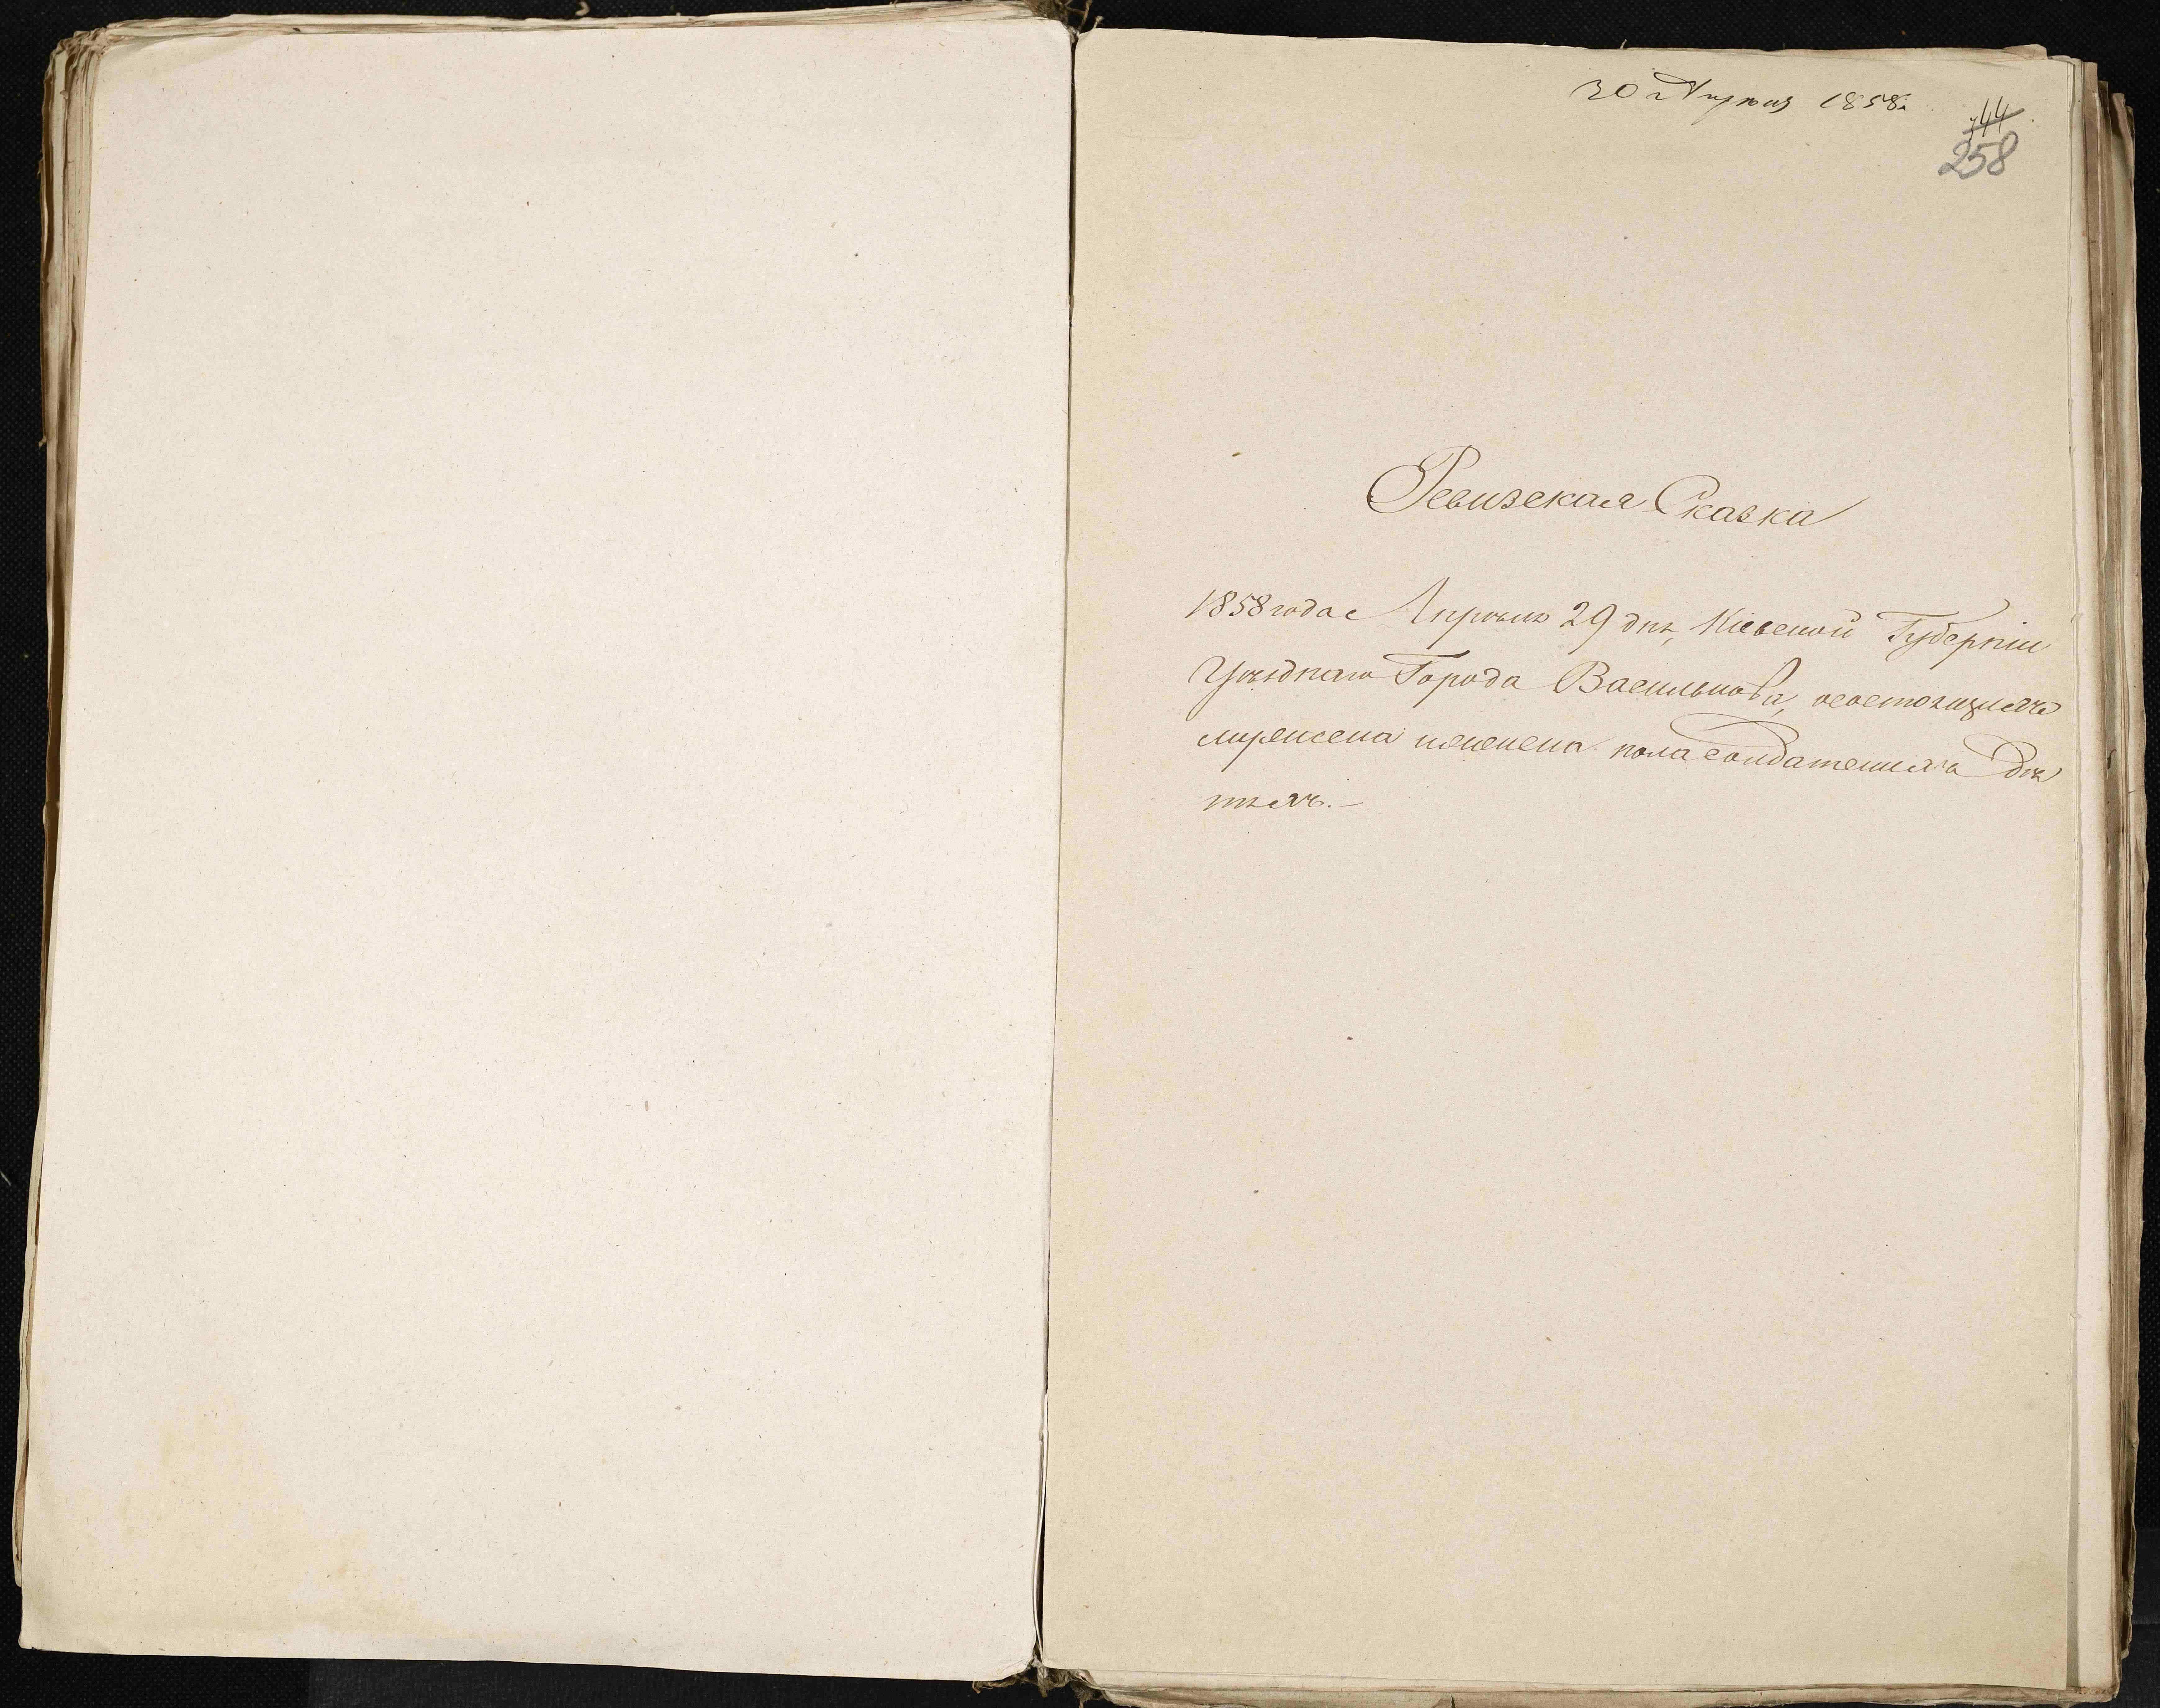 30 Апрѣля 1858.
744
258
Ревизская Сказка
1858 года Апрѣля 29 дня, Кіевской Губерніи
Уѣзднаго Города Василькова, о состоящихъ
мужеска и женска пола солдатскихъ дѣ
тяхъ.—